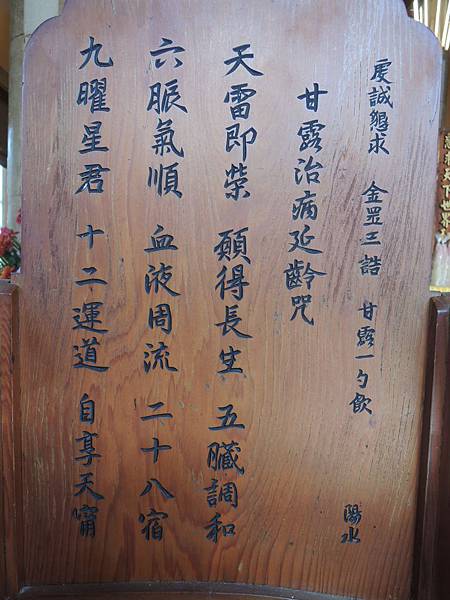 虔誠懇求 金罡三誥 甘露一勺飲
陽水
甘露治病延齡咒
天雷即榮 願得長生 五臟調和
六脈氣順 血液周流 二十八宿
九曜星君 十二運道 自享天甯